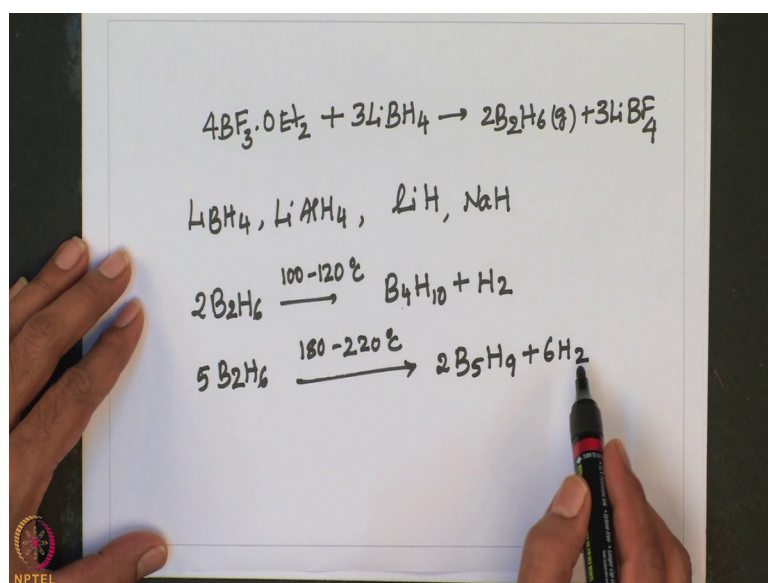 4BF₃·OEt₂ + 3LiBH₄ → 2B₂H₆(g) + 3LiBF₄
LiBH₄, LiAlH₄, LiH, NaH
2B₂H₆ —100-120℃→ B₄H₁₀ + H₂
5B₂H₆ —180-220℃→ 2B₅H₉ + 6H₂
NPTEL